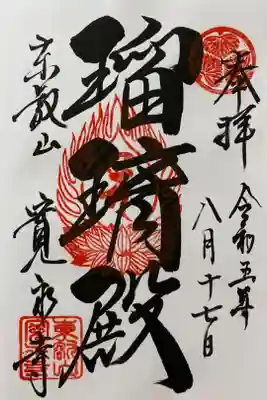 奉拝
令和五年
八月十七日
瑠璃殿
東叡山
寛永寺